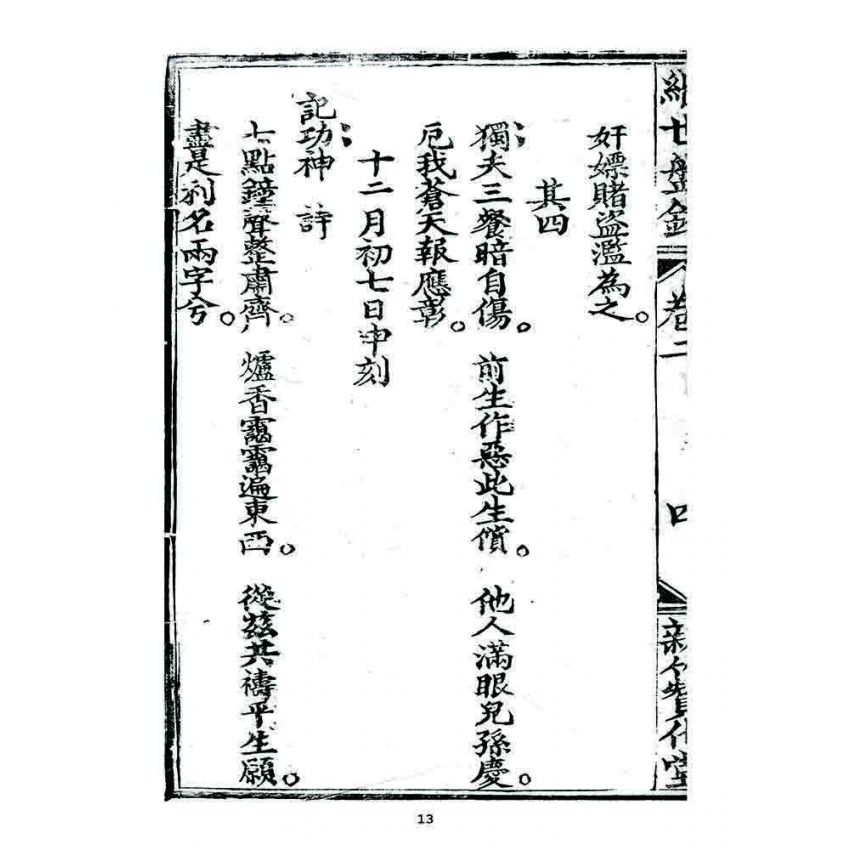 世盤
卷二
奸嫖賭盜濫為之。
其四
獨夫三餐暗自傷。 前生作惡此生償。 他人滿眼兒孫慶。
厄我蒼天報應彰。
十二月初七日申刻
記功神 詩
七點鐘聲整肅齊。 爐香靄靄遍東西。 從茲共禱平生願。
盡是利名兩字兮。
13